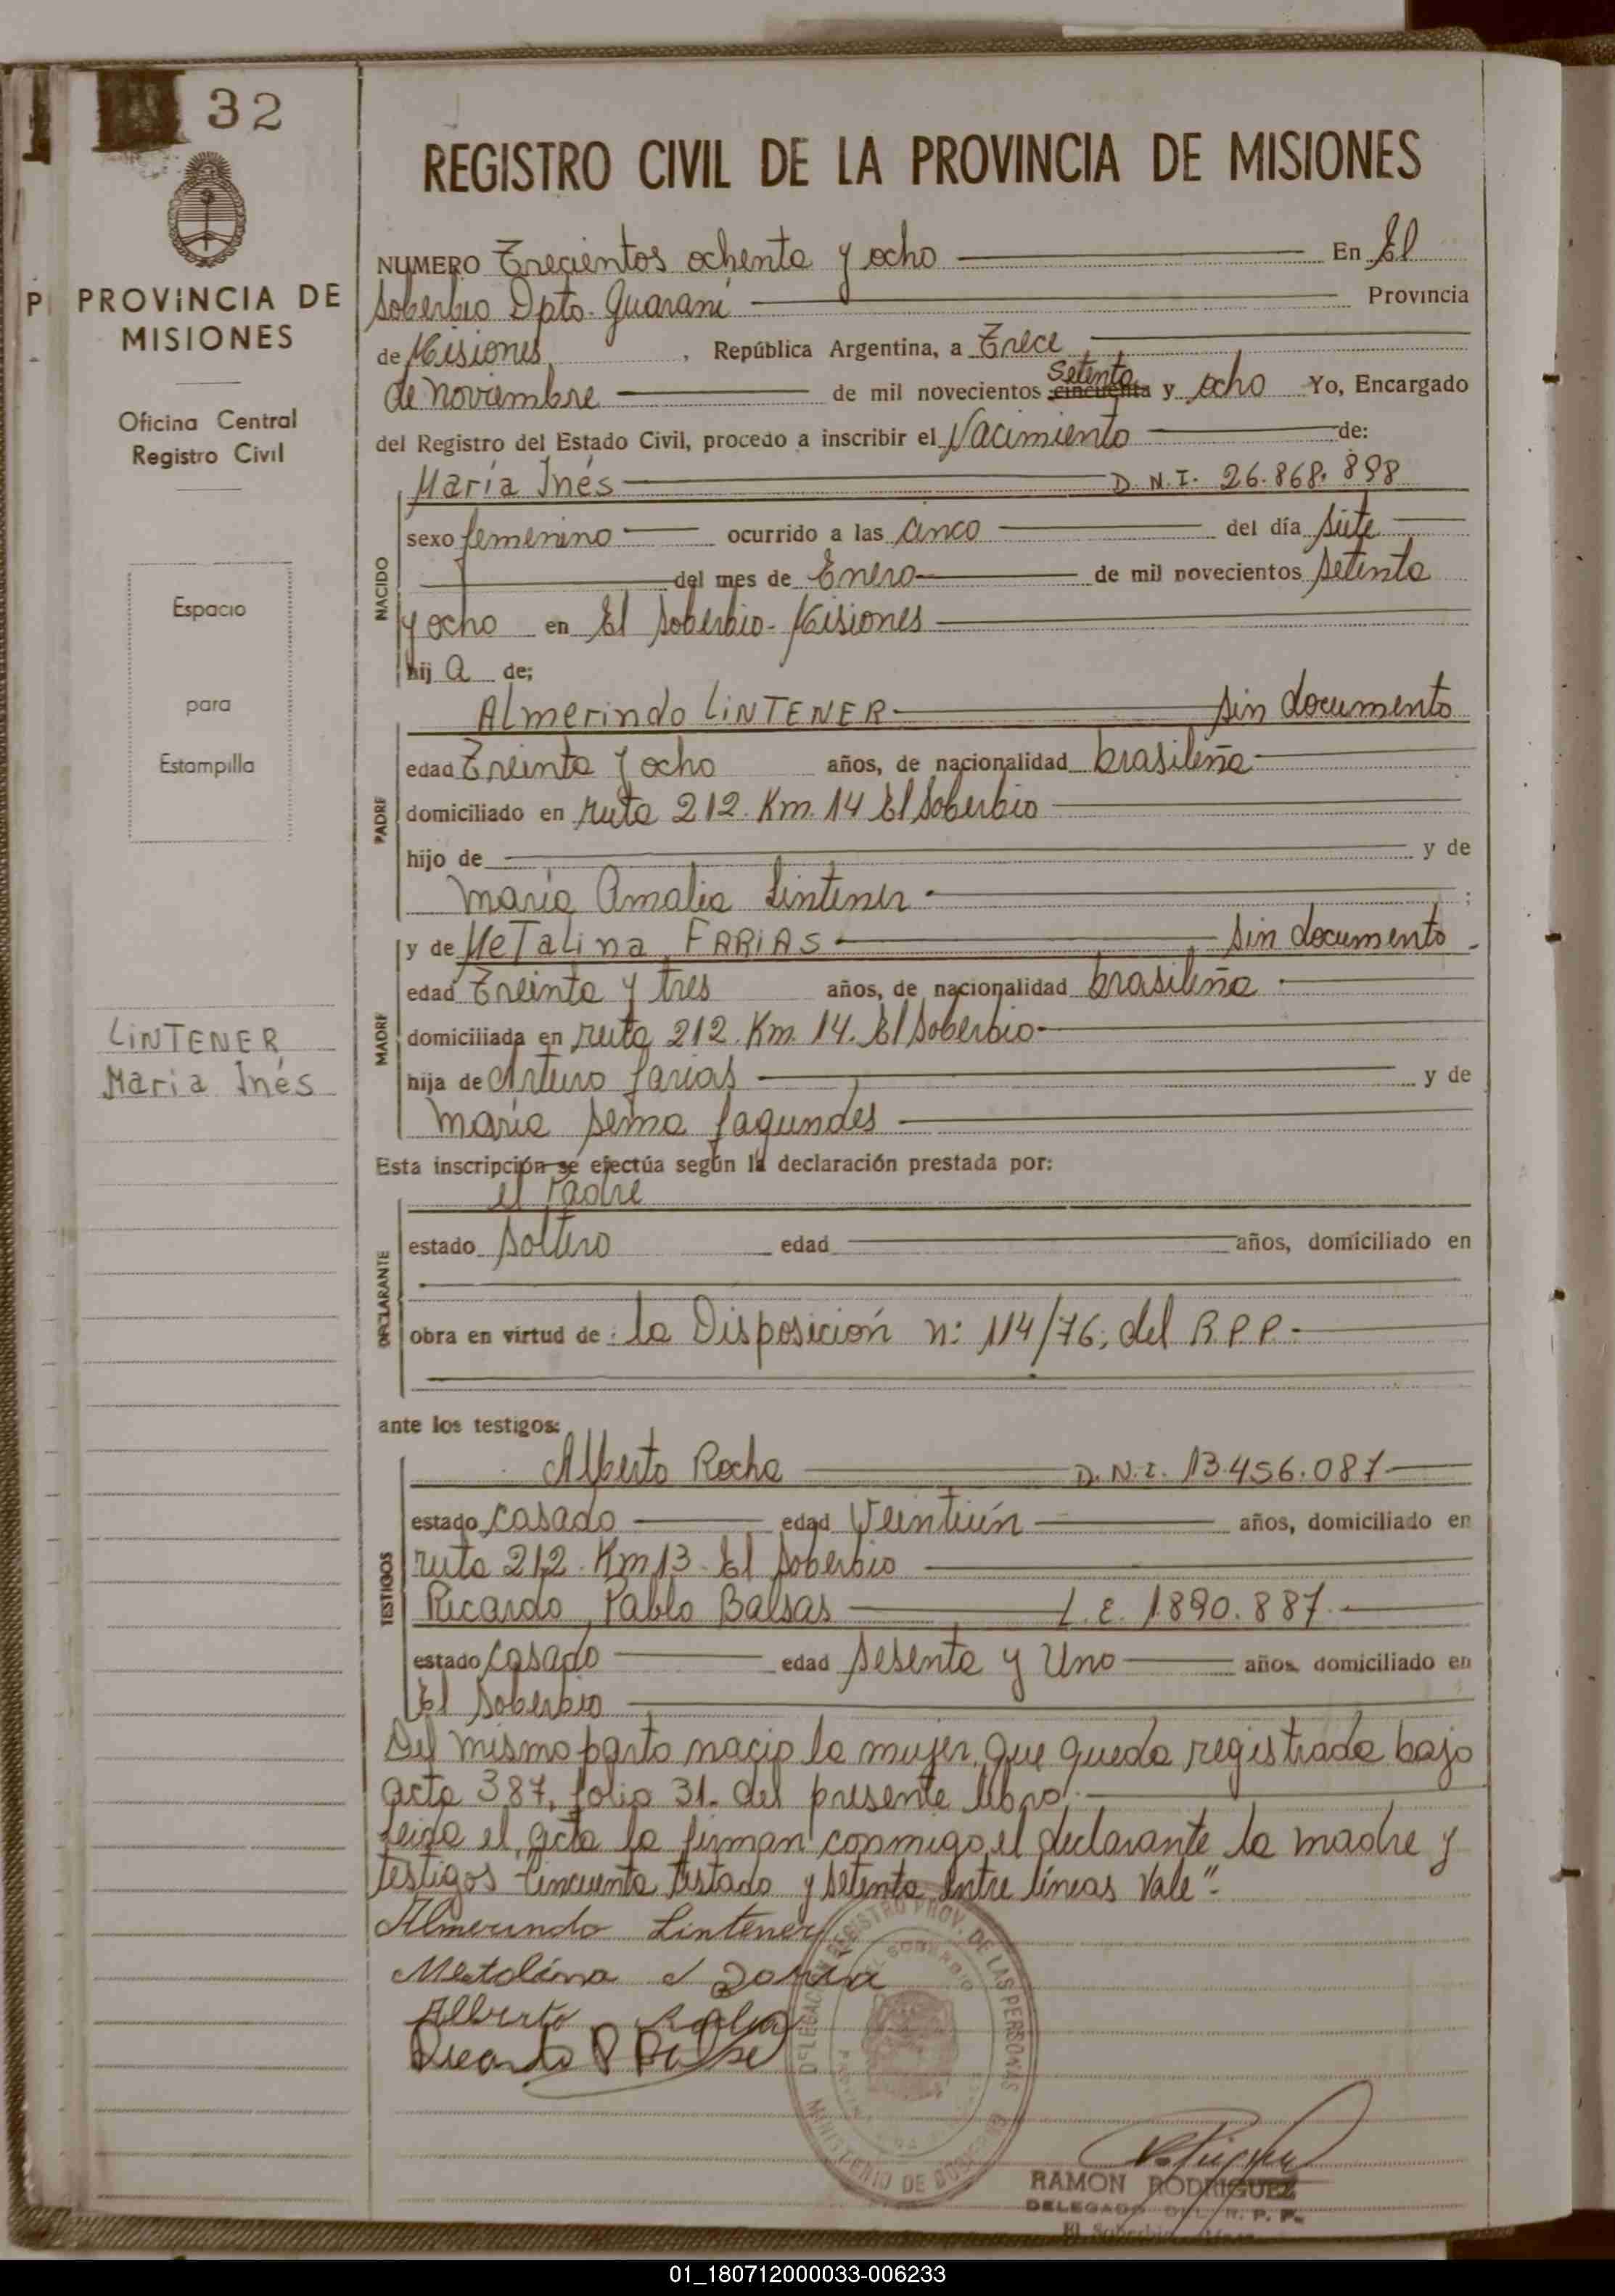 32
P PROVINCIA DE
MISIONES
Oficina Central
Registro Civil
Espacio
para
Estampilla
LiNTENER
Maria Inés
REGISTRO CIVIL DE LA PROVINCIA DE MISIONES
NUMERO Trecientos ochenta y ocho En El
Soberbio Dpto. Guaraní Provincia
de Misiones, República Argentina, a Trece
de noviembre de mil novecientos cincuenta Setenta y ocho Yo, Encargado
del Registro del Estado Civil, procedo a inscribir el Nacimiento de:
María Inés D.N.I. 26.868.898
NACIDO
sexo femenino ocurrido a las cinco del día siete
del mes de Enero de mil novecientos setenta
y ocho en El Soberbio - Misiones
hij a de;
Almerindo LiNTENER sin documento
PADRE
edad Treinta y ocho años, de nacionalidad brasileña
domiciliado en ruta 212. Km. 14 El Soberbio
hijo de y de
maría Amalia Lintener ;
y de MeTalina FARIAS sin documento
MADRE
edad Treinta y tres años, de nacionalidad brasileña
domiciliada en ruta 212. Km. 14. El Soberbio
hija de Arturo farias y de
maría sema fagundes
Esta inscripción se efectúa según la declaración prestada por:
el Padre
DECLARANTE
estado soltero edad años, domiciliado en
obra en virtud de: la Disposición n: 114/76, del R.P.P.
ante los testigos:
Alberto Rocha D.N.I. 13.456.087
TESTIGOS
estado casado edad Veintiún años, domiciliado en
ruta 212. Km 13. El Soberbio
Ricardo Pablo Balsas L.E. 1.890.887
estado casado edad sesenta y Uno años domiciliado en
El Soberbio
Del mismo parto nació la mujer, que queda registrada bajo
acta 387, folio 31. del presente libro.
leida el acta la firman conmigo, el declarante la madre y
testigos - Cincuenta testado y setenta entre líneas Vale".
Almerindo Lintener
Alberto
Ricardo P
DELEGACION REGISTRO PROV. DE LAS PERSONAS
EL SOBERBIO
MINISTERIO DE
RAMON RODRIGUEZ
DELEGADO DEL R. P. P.
El Soberbio
01_180712000033-006233